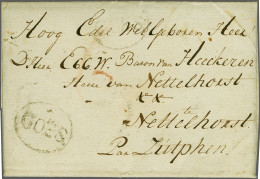 Hoog Edel Welgeboren Heer
D'Heer E G G W. Baron van Heeckeren
Heere van Nettelhorst
& &
te
Nettelhorst.
Par Zutphen.
GOES